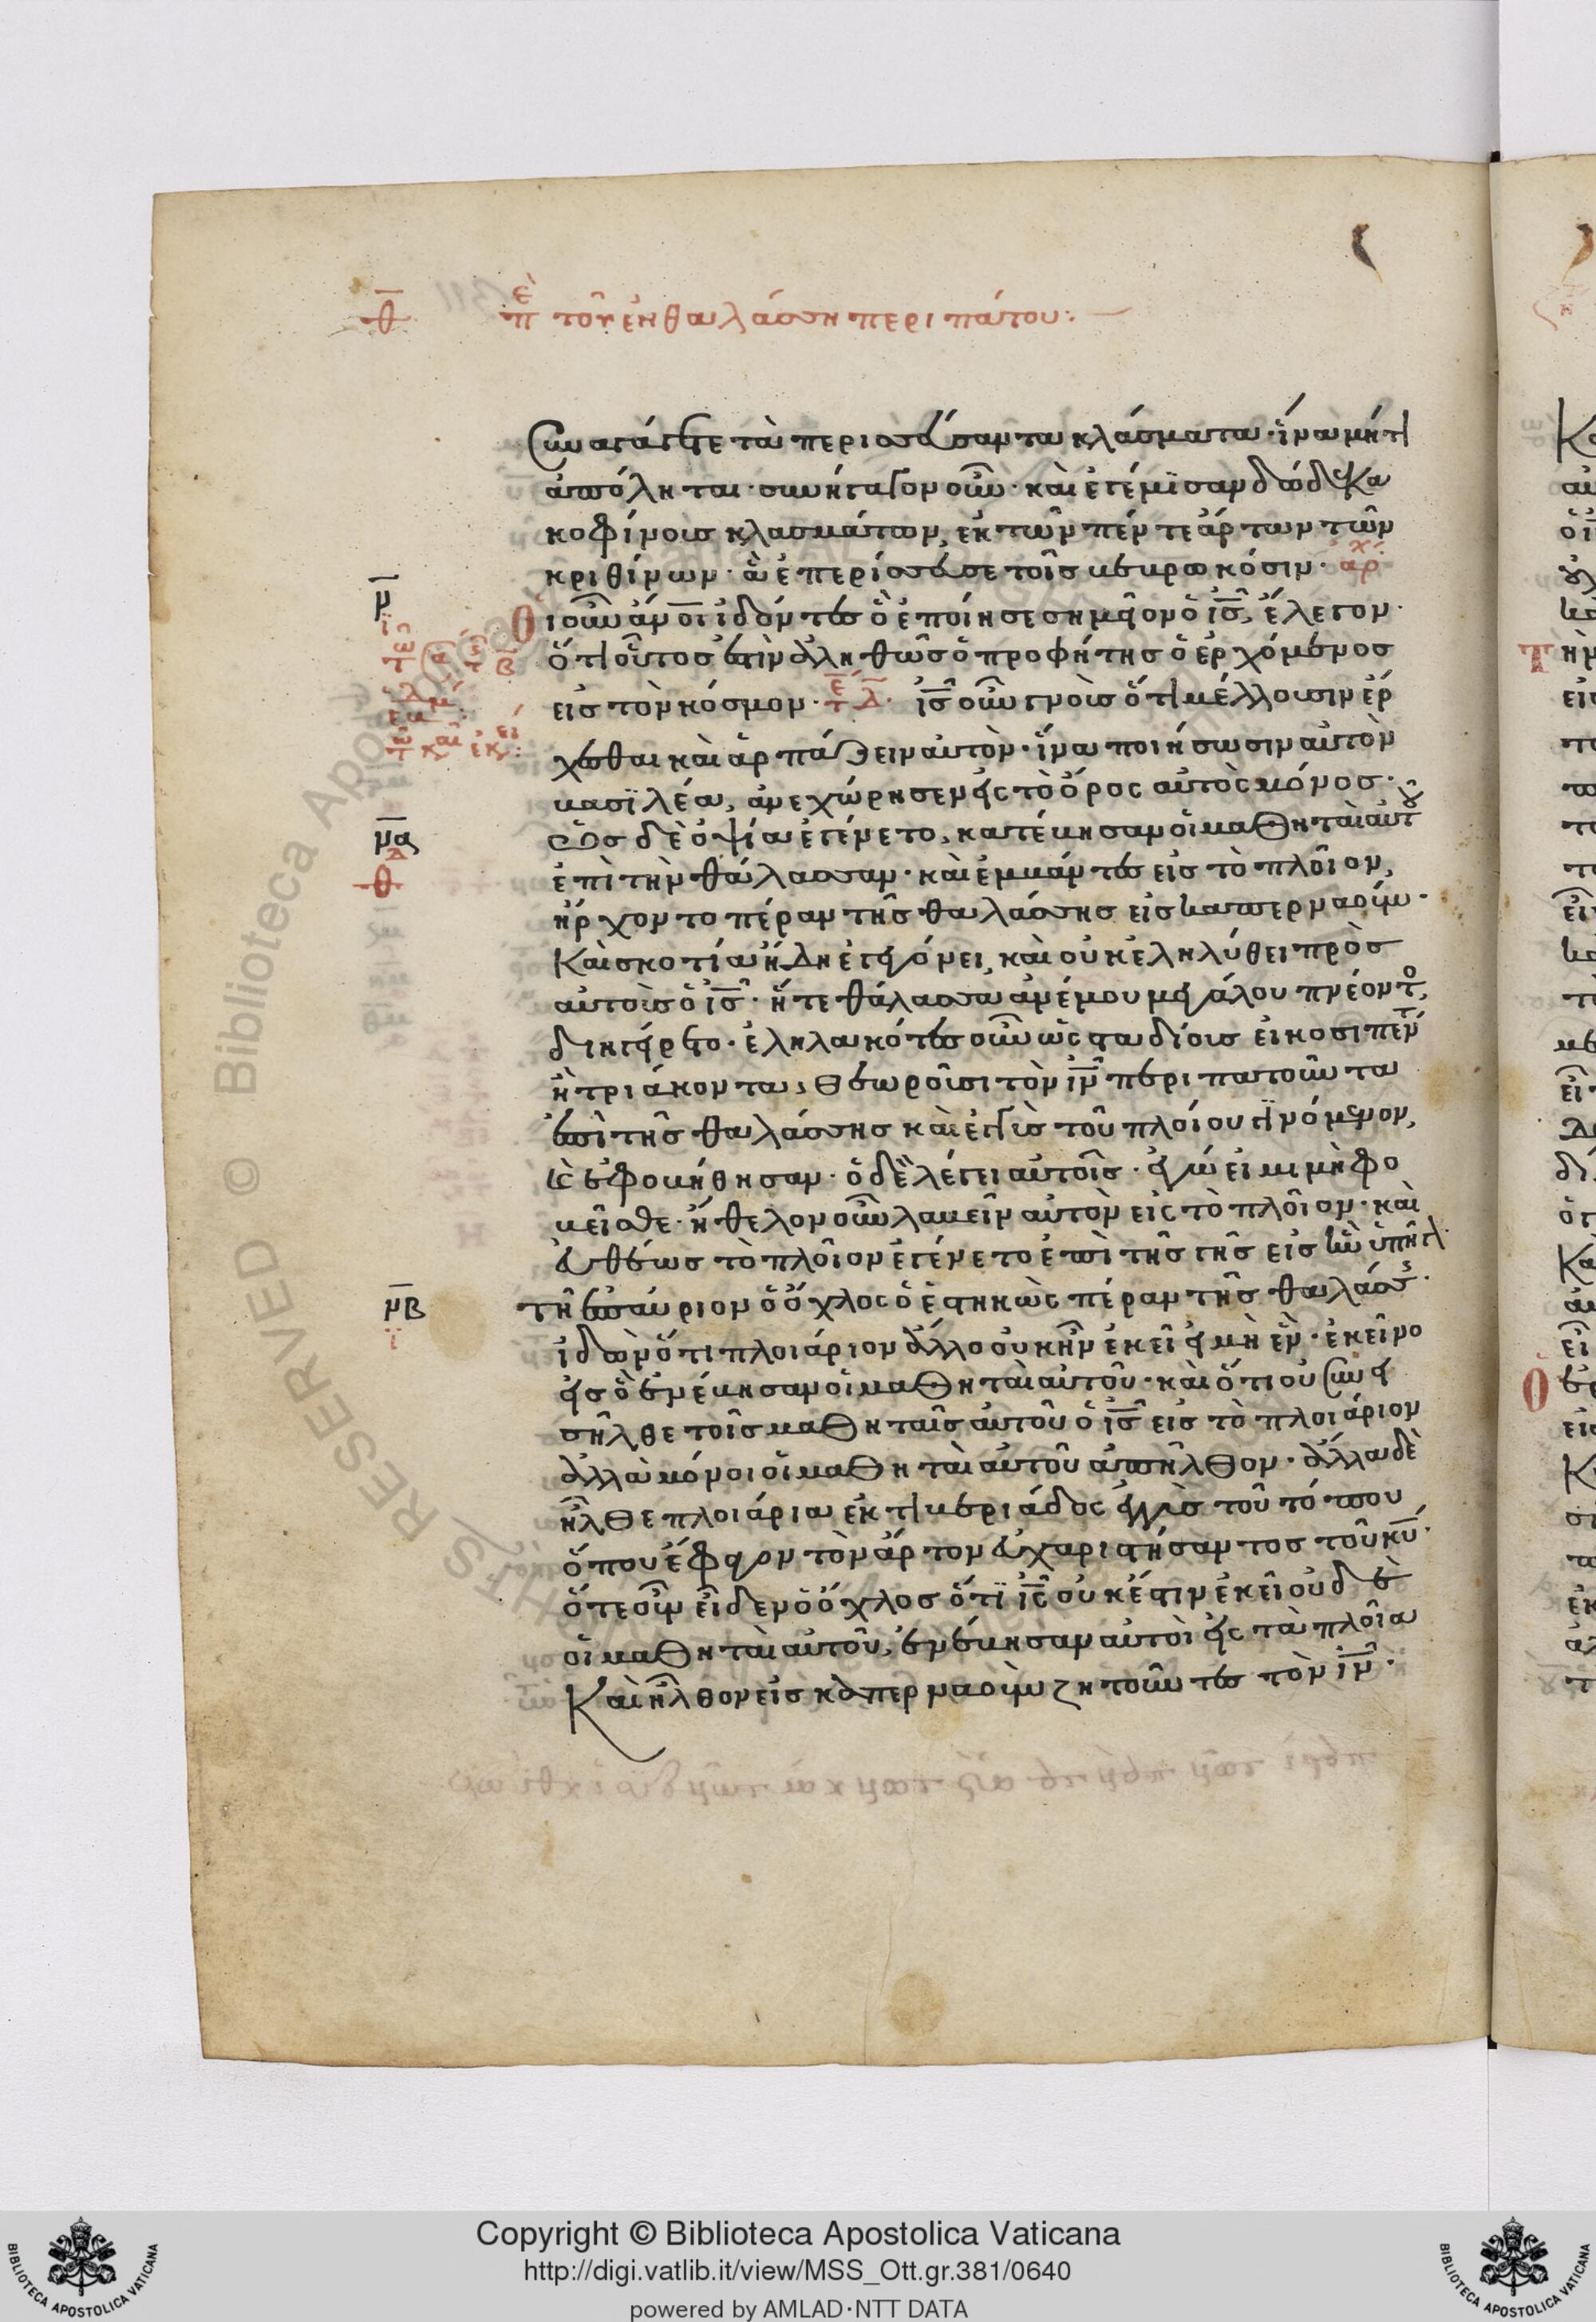 θ̅ π̅ὲ τοῦ ἐν θαλάσση περιπάτου:
Συναγάγετε τὰ περισσεύσαντα κλάσματα· ἵνα μή τι
ἀπόληται· συνήγαγον οὖν· καὶ ἐγέμϊσαν δώδεκα
κοφίνους κλασμάτων, ἐκ τῶν πέντε ἄρτων τῶν
κριθίνων· ἃ ἐπερίσσευσε τοῖς βεβρωκόσιν· ἀρχ:
ν̅
Οἱ οὖν ἄν̅οι ἰδόντες ὃ ἐποίησε σημεῖον ὁ ι̅ς̅, ἔλεγον·
ὅτι οὗτος ἐστὶν ἀληθῶς ὁ προφήτης ὁ ἐρχόμενος
εἰς τὸν κόσμον· ι̅ς̅ οὖν γνοὺς ὅτι μέλλουσιν ἔρ
χεσθαι καὶ ἁρπάζειν αὐτὸν· ἵνα ποιήσωσιν αὐτὸν
βασϊλέα, ἀνεχώρησεν εἰς τὸ ὄρος αὐτὸς μόνος·
ν̅α
θ
Ὡς δὲ ὀψία ἐγένετο, κατέβησαν οἱ μαθηταὶ αὐτοῦ
ἐπὶ τὴν θάλασσαν· καὶ ἐμβάντες εἰς τὸ πλοῖον,
ἤρχοντο πέραν τῆς θαλάσσης εἰς καπερναούμ·
Καὶ σκοτία ἤδη ἐγεγόνει, καὶ οὐκ ἐληλύθει πρὸς
αὐτοὺς ὁ ι̅ς̅· ἥ τε θάλασσα ἀνέμου μεγάλου πνέοντο
διηγέρετο· ἐληλακότες οὖν ὡς σταδίους εἰκοσιπέν
ἢ τριάκοντα, θεωροῦσι τὸν ι̅ν̅ περιπατοῦντα
ἐπὶ τῆς θαλάσσης καὶ ἐγγὺς τοῦ πλοίου γϊνόμενον,
καὶ ἐφοβήθησαν· ὁ δὲ λέγει αὐτοῖς· ἐγώ εἰμι μὴ φο
βεῖσθε· ἤθελον οὖν λαβεῖν αὐτὸν εἰς τὸ πλοῖον· καὶ
εὐθέως τὸ πλοῖον ἐγένετο ἐπὶ τῆς γῆς εἰς ἣν ὑπῆγ
ν̅β
τῆ ἐπαύριον ὁ ὄχλος ὁ ἑστηκὼς πέραν τῆς θαλάσσ
ἰδὼν ὅτι πλοιάριον ἄλλο οὐκ ἦν ἐκεῖ εἰ μὴ ἓν· ἐκεῖνο
εἰς ὃ ἐνέβησαν οἱ μαθηταὶ αὐτοῦ· καὶ ὅτι οὐ συνει
σῆλθε τοῖς μαθηταῖς αὐτοῦ ὁ ι̅ς̅ εἰς τὸ πλοιάριον
ἀλλὰ μόνοι οἱ μαθηταὶ αὐτοῦ ἀπῆλθον· ἄλλα δὲ
ἦλθε πλοιάρια ἐκ τιβεριάδος ἐγγὺς τοῦ τόπου
ὅπου ἔφαγον τὸν ἄρτον εὐχαριστήσαντος τοῦ κ̅υ̅·
ὅτε οὖν εἶδεν ὁ ὄχλος ὅτϊ ι̅ς̅ οὐκ ἔστιν ἐκεῖ οὐδὲ
οἱ μαθηταὶ αὐτοῦ, ἐνέβησαν αὐτοὶ εἰς τὰ πλοῖα
Καὶ ἦλθον εἰς καπερναοὺμ ζητοῦντες τὸν ι̅ν̅·
Copyright © Biblioteca Apostolica Vaticana
http://digi.vatlib.it/view/MSS_Ott.gr.381/0640
powered by AMLAD·NTT DATA